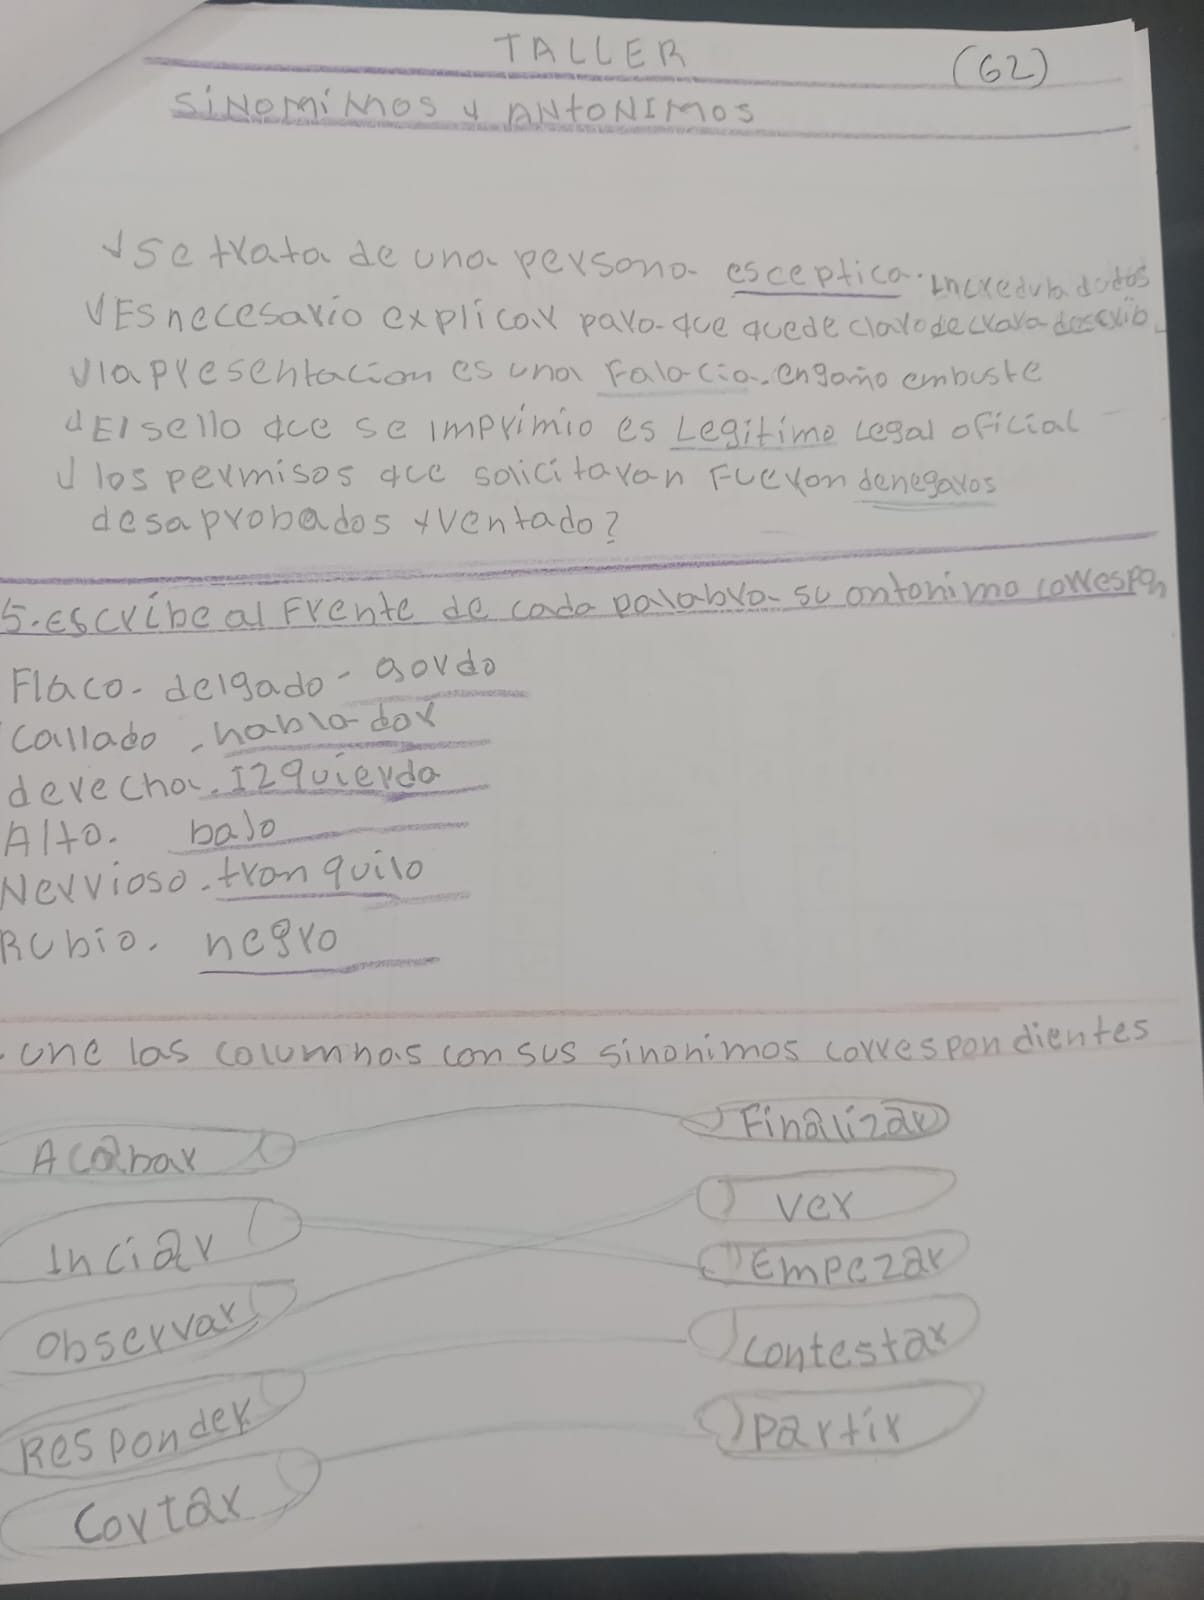 TALLER
(62)
SINOMIMOS Y ANTONIMOS
Se trata de una persona esceptica. Incredula
ES necesario explicar para que quede claro
la presentacion es una Falacia. engaño embuste
El sello que se imprimio es Legitimo Legal oficial
los permisos que solicitaron Fueron denegaros
desaprobados
5. escribe al Frente de cada palabra su antonimo correspon
Flaco - delgado - gordo
Callado - hablador
derecha. Izquierda
Alto. bajo
Nervioso. tranquilo
RUbio. negro
. une las columnas con sus sinonimos correspondientes
Acabar Finalizar
Inciar ver
Empezar
Observar
Contestar
Responder
partir
Cortar